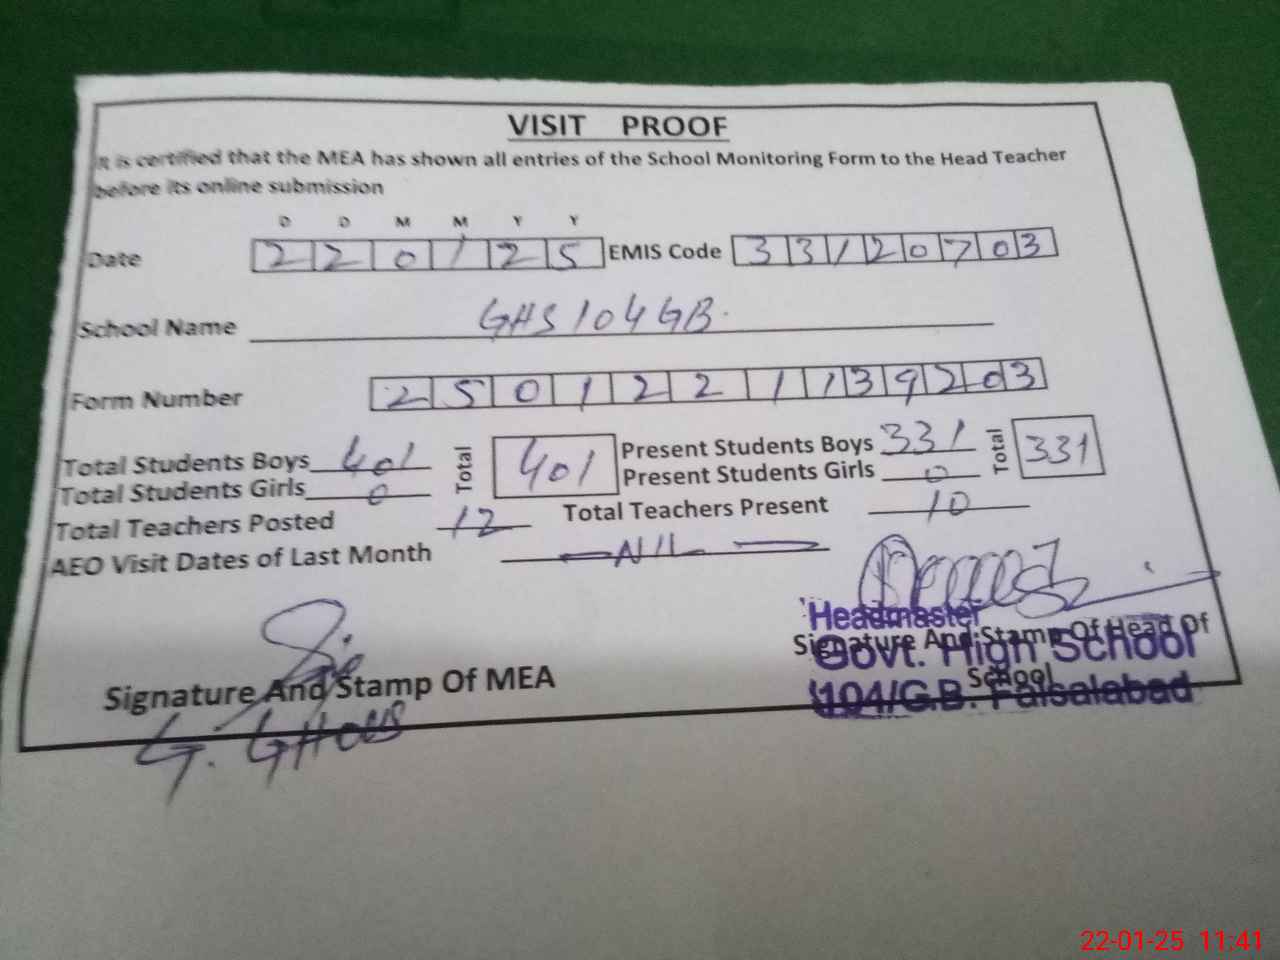 VISIT PROOF
It is certified that the MEA has shown all entries of the School Monitoring Form to the Head Teacher
before its online submission
D D M M Y Y
Date 2 2 0 1 2 5 EMIS Code 3 3 1 2 0 7 0 3
School Name GHS 104 GB.
Form Number 2 5 0 1 2 2 1 1 3 9 2 0 3
Total Students Boys 401 Total 401 Present Students Boys 331 Total 331
Total Students Girls 0 Present Students Girls 0
Total Teachers Posted 12 Total Teachers Present 10
AEO Visit Dates of Last Month — NIL —
Signature And Stamp Of MEA
G. GHOUS
Signature And Stamp Of Head Of
School
Headmaster
Govt. High School
104/G.B. Faisalabad
22-01-25 11:41